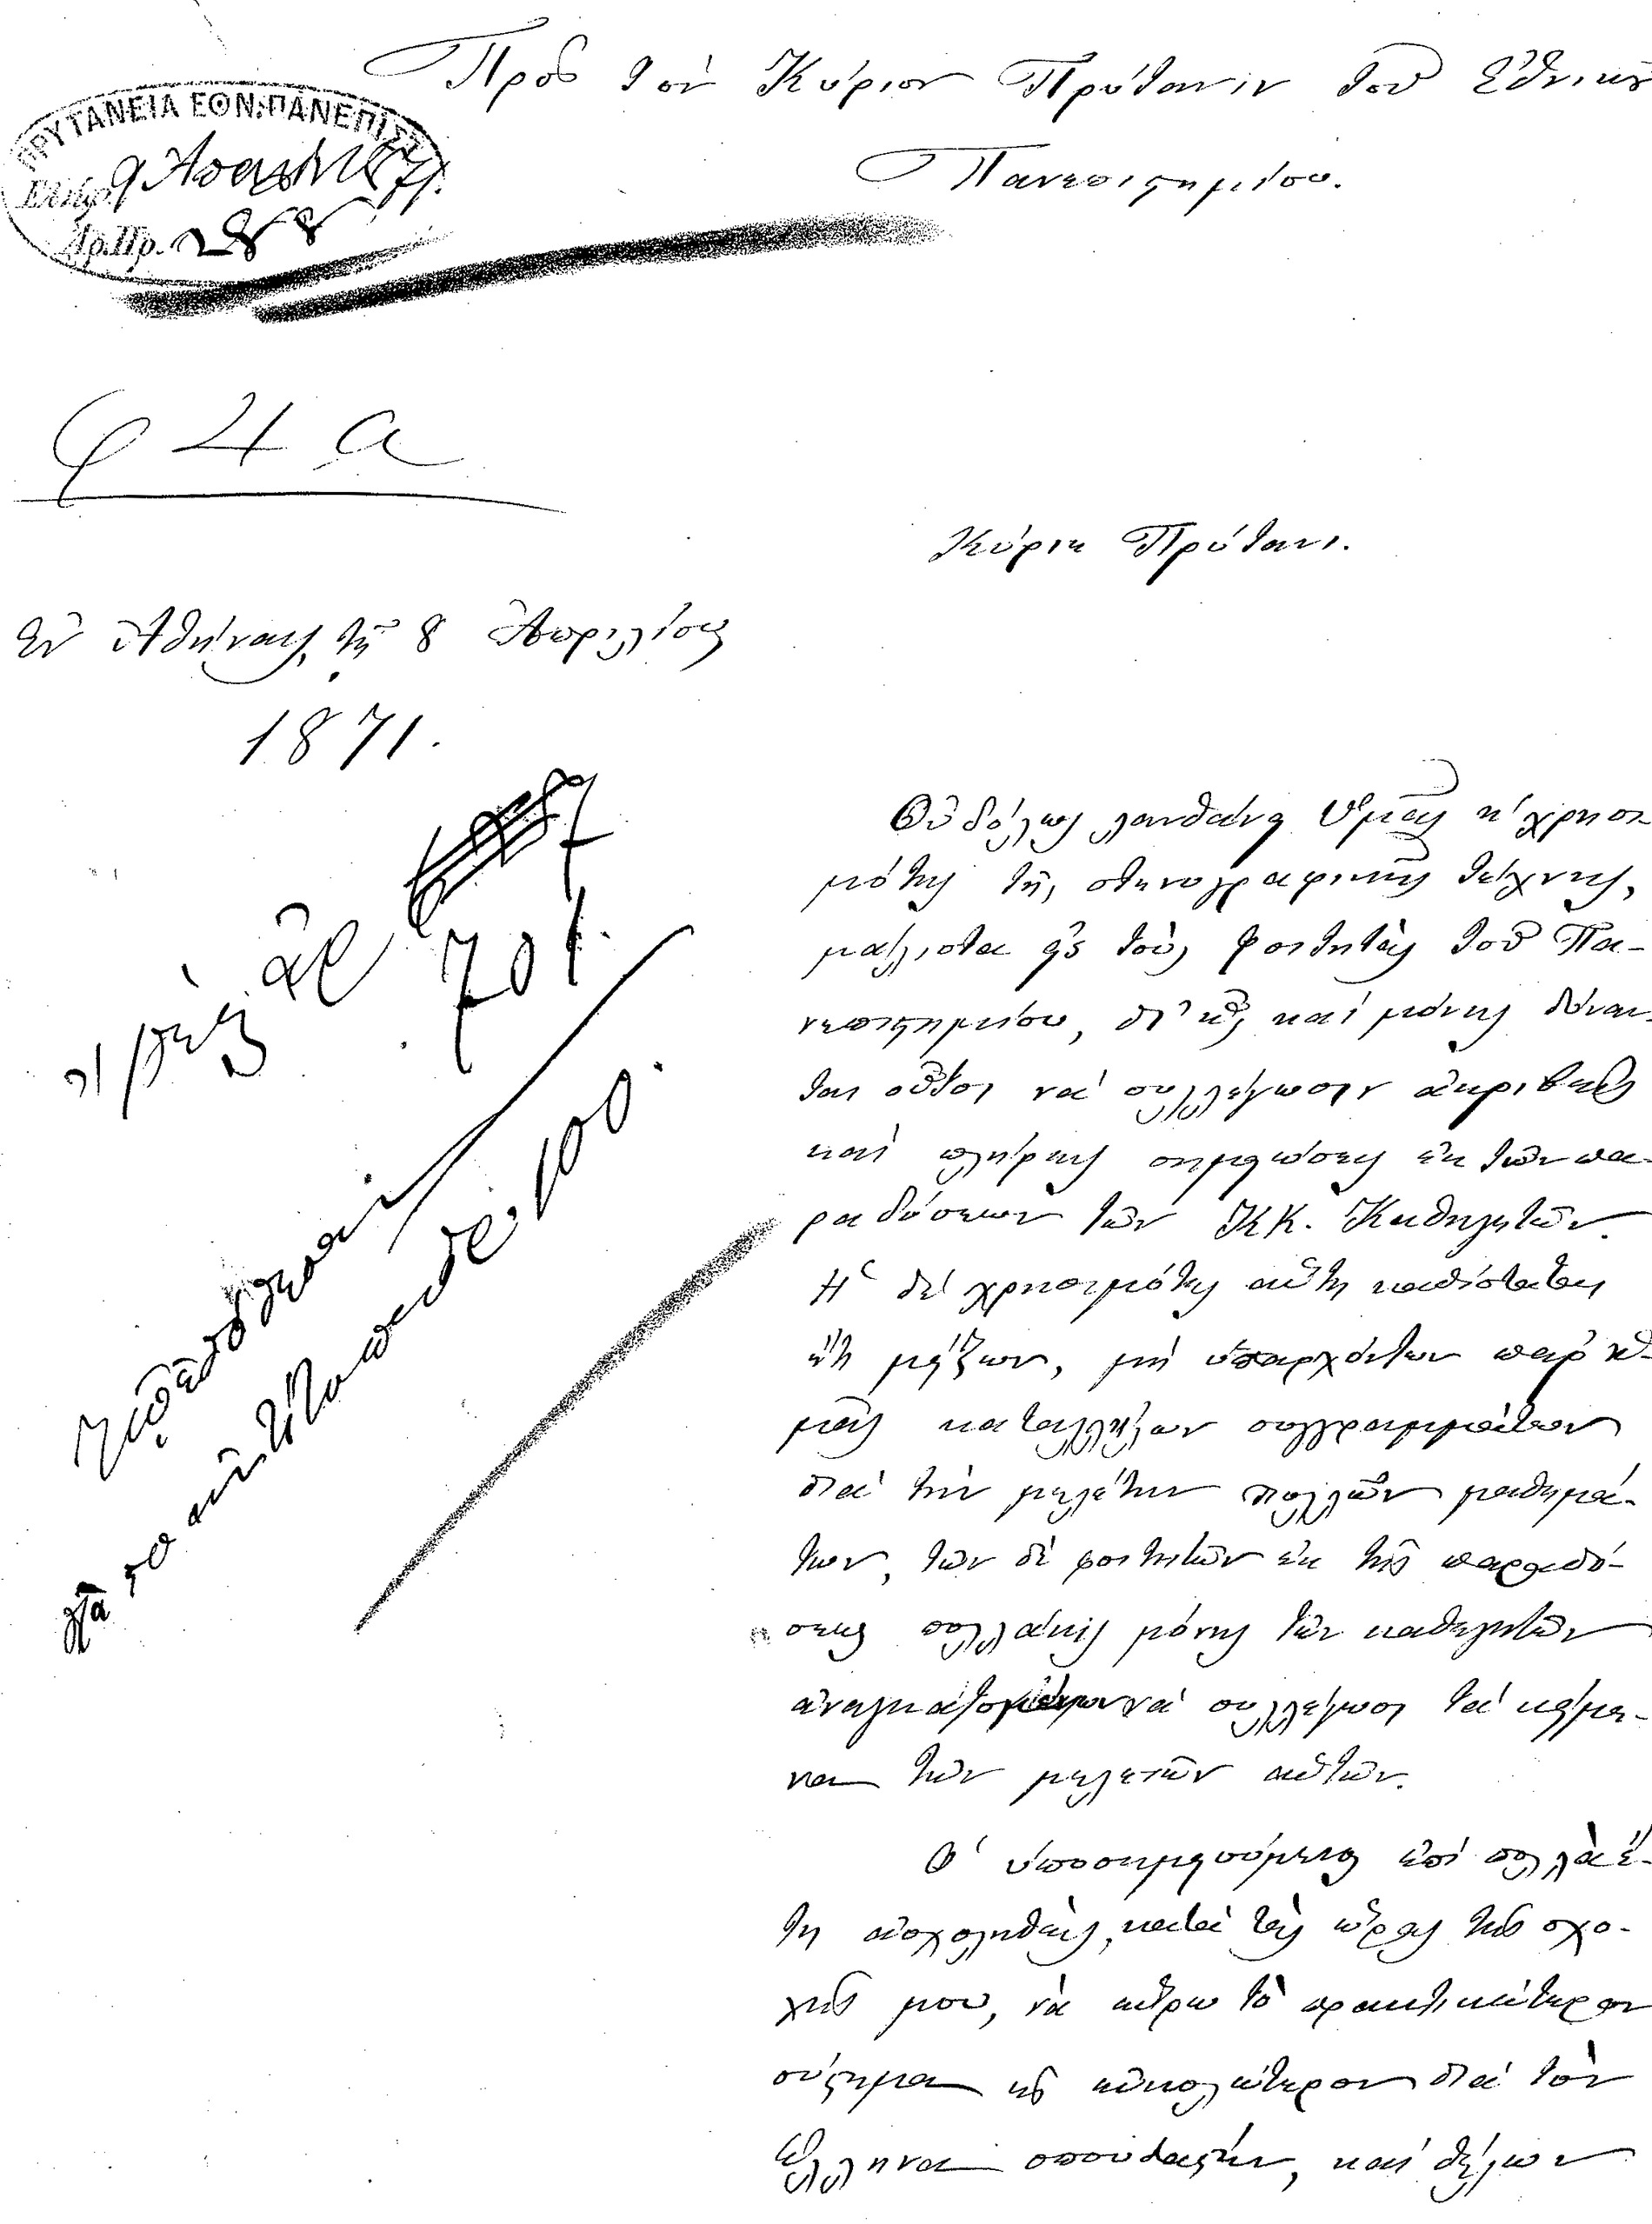 Πρὸς τὸν Κύριον Πρύτανιν τοῦ Ἐθνικοῦ
Πανεπιστημίου.
ΠΡΥΤΑΝΕΙΑ ΕΘΝ. ΠΑΝΕΠΙΣΤ.
9 Ἀπριλ 71.
Ἀρ.Πρ. 288
φ 4 α
Κύριε Πρύτανι.
Ἐν Ἀθήναις, τῇ 8 Ἀπριλίου
1871.
701.
Οὐδόλως λανθάνει Ὑμᾶς ἡ χρησι-
μότης τῆς στενογραφικῆς τέχνης,
μάλιστα εἰς τοὺς φοιτητὰς τοῦ Πα-
νεπιστημίου, δι' ἧς καὶ μόνης δύναν-
ται οὗτοι νὰ συλλέγωσιν ἀκριβεῖς
καὶ πλήρεις σημειώσεις ἐκ τῶν πα-
ραδόσεων τῶν Κ.Κ. Καθηγητῶν.
Ἡ δὲ χρησιμότης αὕτη καθίσταται
ἔτι μείζων, μὴ ὑπαρχόντων παρ' ἡ-
μῖν καταλλήλων συγγραμμάτων
διὰ τὴν μελέτην πολλῶν μαθημά-
των, τῶν δὲ φοιτητῶν ἐκ τῆς παραδό-
σεως πολλάκις μόνης τῶν καθηγητῶν
ἀναγκαζομένων νὰ συλλέγωσι τὰ κείμε-
να τῶν μελετῶν αὐτῶν.
Ὁ ὑποσημειούμενος ἐπὶ πολλὰ ἔ-
τη ἀσχοληθείς, κατὰ τὰς ὥρας τῆς σχο-
λῆς μου, νὰ εὕρω τὸ πρακτικώτερον
σύστημα καὶ εὐκολώτερον διὰ τὸν
Ἕλληνα σπουδαστήν, καὶ θέλων